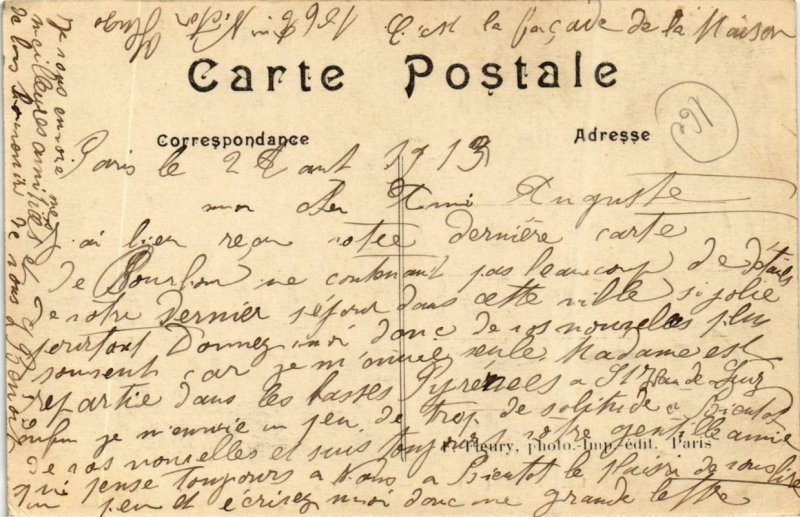 C'est la façade de la Maison
Victor Hugo
Carte Postale
Correspondance
Adresse
Paris le 2 Aout 1913
mon cher Ami Auguste
j'ai bien reçu votre dernière carte
de Bourbon ne contenant pas beaucoup de détails
de votre dernier séjour dans cette ville si jolie
pourtant Donnez moi donc de vos nouvelles plus
souvent car je m'ennuie seule Madame est
repartie dans les basses Pyrénées a St Jean de Luz
enfin je m'ennuie un peu de trop de solitude a Bientot
de vos nouvelles et suis toujours votre gentille amie
qui pense toujours a vous a Bientot le plaisir de vous lire
un peu et écrivez moi donc une grande lettre
Fleury, phot.-Imp. édit. Paris
je vous envoie mes
meilleures amitiés et
de bons de vous